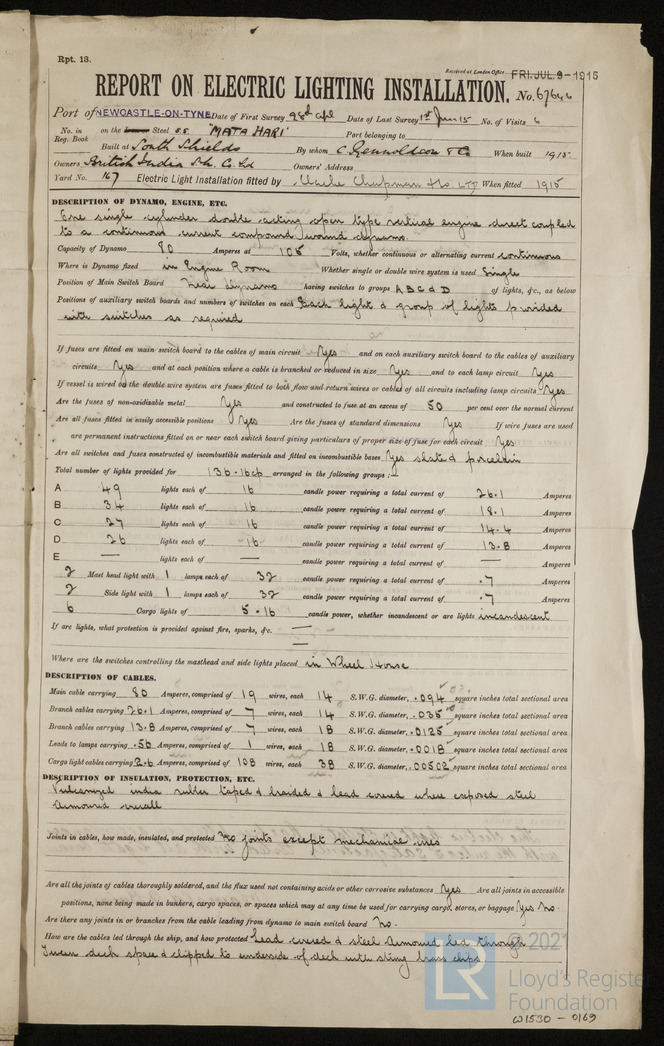 Rpt. 13.
Received at London Office FRI. JUL. 9 - 1915
REPORT ON ELECTRIC LIGHTING INSTALLATION. No. 67646
Port of NEWCASTLE-ON-TYNE Date of First Survey Apl Date of Last Survey 1st Jun 15 No. of Visits 6
No. in Reg. Book on the Iron or Steel S.S. "MATA HARI" Port belonging to
Built at South Shields By whom C. Rennoldson & Co When built 1915
Owners British India S.N. Co. Ltd Owners' Address
Yard No. 167 Electric Light Installation fitted by Clarke Chapman & Co LTD When fitted 1915
DESCRIPTION OF DYNAMO, ENGINE, ETC.
One single cylinder double acting open type vertical engine direct coupled
to a continuous current compound wound dynamo.
Capacity of Dynamo 80 Amperes at 105 Volts, whether continuous or alternating current continuous
Where is Dynamo fixed in Engine Room Whether single or double wire system is used Single
Position of Main Switch Board Near dynamo having switches to groups A B C & D of lights, &c., as below
Positions of auxiliary switch boards and numbers of switches on each Each light & group of lights provided
with switches as required
If fuses are fitted on main switch board to the cables of main circuit Yes and on each auxiliary switch board to the cables of auxiliary
circuits Yes and at each position where a cable is branched or reduced in size Yes and to each lamp circuit Yes
If vessel is wired on the double wire system are fuses fitted to both flow and return wires or cables of all circuits including lamp circuits Yes
Are the fuses of non-oxidizable metal Yes and constructed to fuse at an excess of 50 per cent over the normal current
Are all fuses fitted in easily accessible positions Yes Are the fuses of standard dimensions Yes If wire fuses are used
are permanent instructions fitted on or near each switch board giving particulars of proper size of fuse for each circuit Yes
Are all switches and fuses constructed of incombustible materials and fitted on incombustible bases Yes slate & porcelain
Total number of lights provided for 136 - 16cp arranged in the following groups :-
A 49 lights each of 16 candle power requiring a total current of 26.1 Amperes
B 34 lights each of 16 candle power requiring a total current of 18.1 Amperes
C 27 lights each of 16 candle power requiring a total current of 14.4 Amperes
D 26 lights each of 16 candle power requiring a total current of 13.8 Amperes
E — lights each of — candle power requiring a total current of — Amperes
2 Mast head light with 1 lamps each of 32 candle power requiring a total current of .7 Amperes
2 Side light with 1 lamps each of 32 candle power requiring a total current of .7 Amperes
6 Cargo lights of 5 - 16 candle power, whether incandescent or arc lights incandescent
If arc lights, what protection is provided against fire, sparks, &c. —
Where are the switches controlling the masthead and side lights placed in Wheel House
DESCRIPTION OF CABLES.
Main cable carrying 80 Amperes, comprised of 19 wires, each 14 S.W.G. diameter, .094 square inches total sectional area
Branch cables carrying 26.1 Amperes, comprised of 7 wires, each 14 S.W.G. diameter, .035 square inches total sectional area
Branch cables carrying 13.8 Amperes, comprised of 7 wires, each 18 S.W.G. diameter, .0125 square inches total sectional area
Leads to lamps carrying .56 Amperes, comprised of 1 wires, each 18 S.W.G. diameter, .0018 square inches total sectional area
Cargo light cables carrying 2.6 Amperes, comprised of 108 wires, each 38 S.W.G. diameter, .00502 square inches total sectional area
DESCRIPTION OF INSULATION, PROTECTION, ETC.
Vulcanized india rubber taped & braided & lead covered where exposed steel
armoured overall
Joints in cables, how made, insulated, and protected No joints except mechanical ones
Are all the joints of cables thoroughly soldered, and the flux used not containing acids or other corrosive substances Yes Are all joints in accessible
positions, none being made in bunkers, cargo spaces, or spaces which may at any time be used for carrying cargo, stores, or baggage Yes No.
Are there any joints in or branches from the cable leading from dynamo to main switch board No.
How are the cables led through the ship, and how protected Lead covered & steel armoured led through
Tween deck space & clipped to underside of deck with strong brass clips
© 2021
LR
Lloyd's Register
Foundation
W1530 - 0169